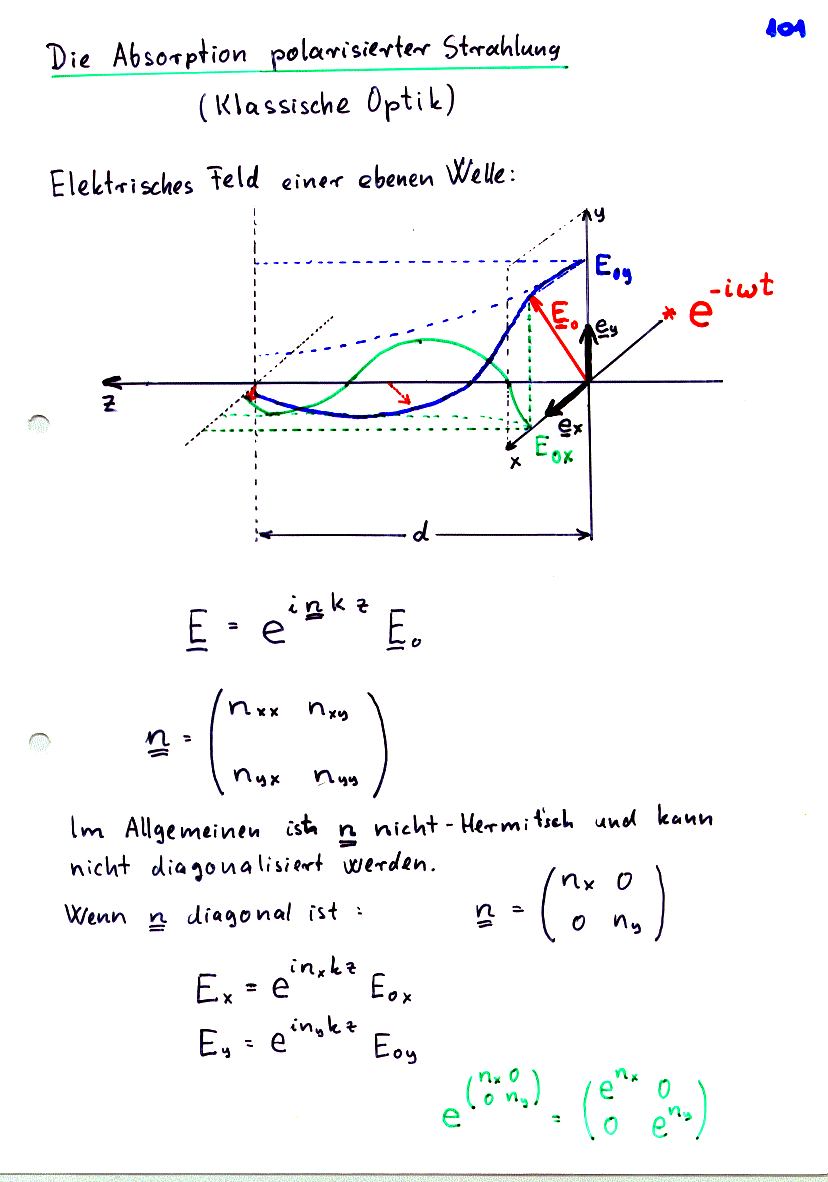 101
Die Absorption polarisierter Strahlung
(Klassische Optik)
Elektrisches Feld einer ebenen Welle:
y
E₀y
* e^-iωt
E₀
e_y
z
e_x
x
E₀x
d
E = e^(i n k z) E₀
n = ( n_xx n_xy
n_yx n_yy )
Im Allgemeinen ist n nicht-Hermitsch und kann
nicht diagonalisiert werden.
Wenn n diagonal ist : n = ( n_x 0
0 n_y )
E_x = e^(i n_x k z) E₀x
E_y = e^(i n_y k z) E₀y
e^( n_x 0 0 n_y ) = ( e^n_x 0
0 e^n_y )